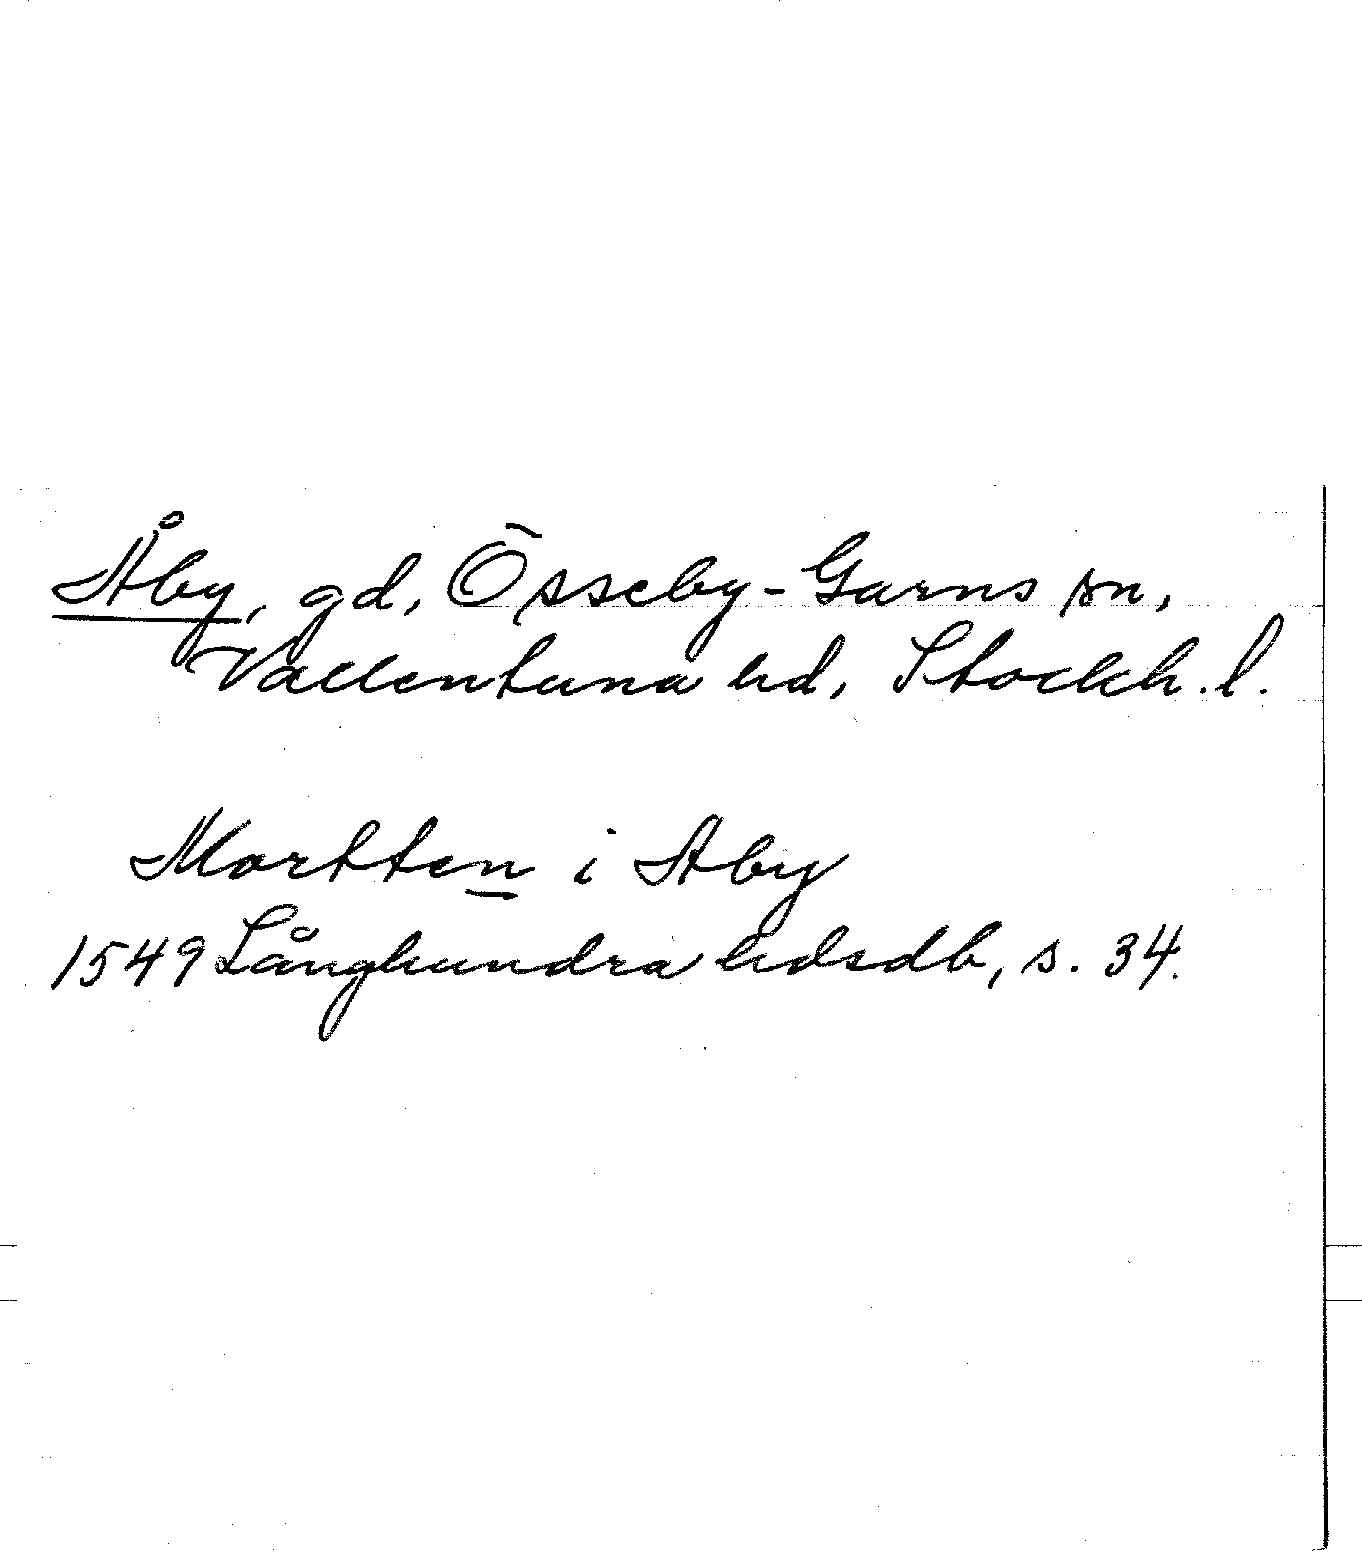 Åby, gd, Össeby-Garns sn,
Vallentuna hd, Stockh. l.
Mortten i Aby
1549 Långhundra hdsdb, s. 34.